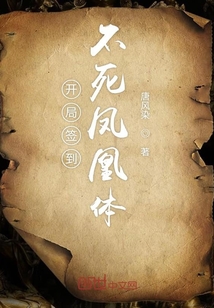 开局签到
不死凤凰体
唐风染 著
中文网